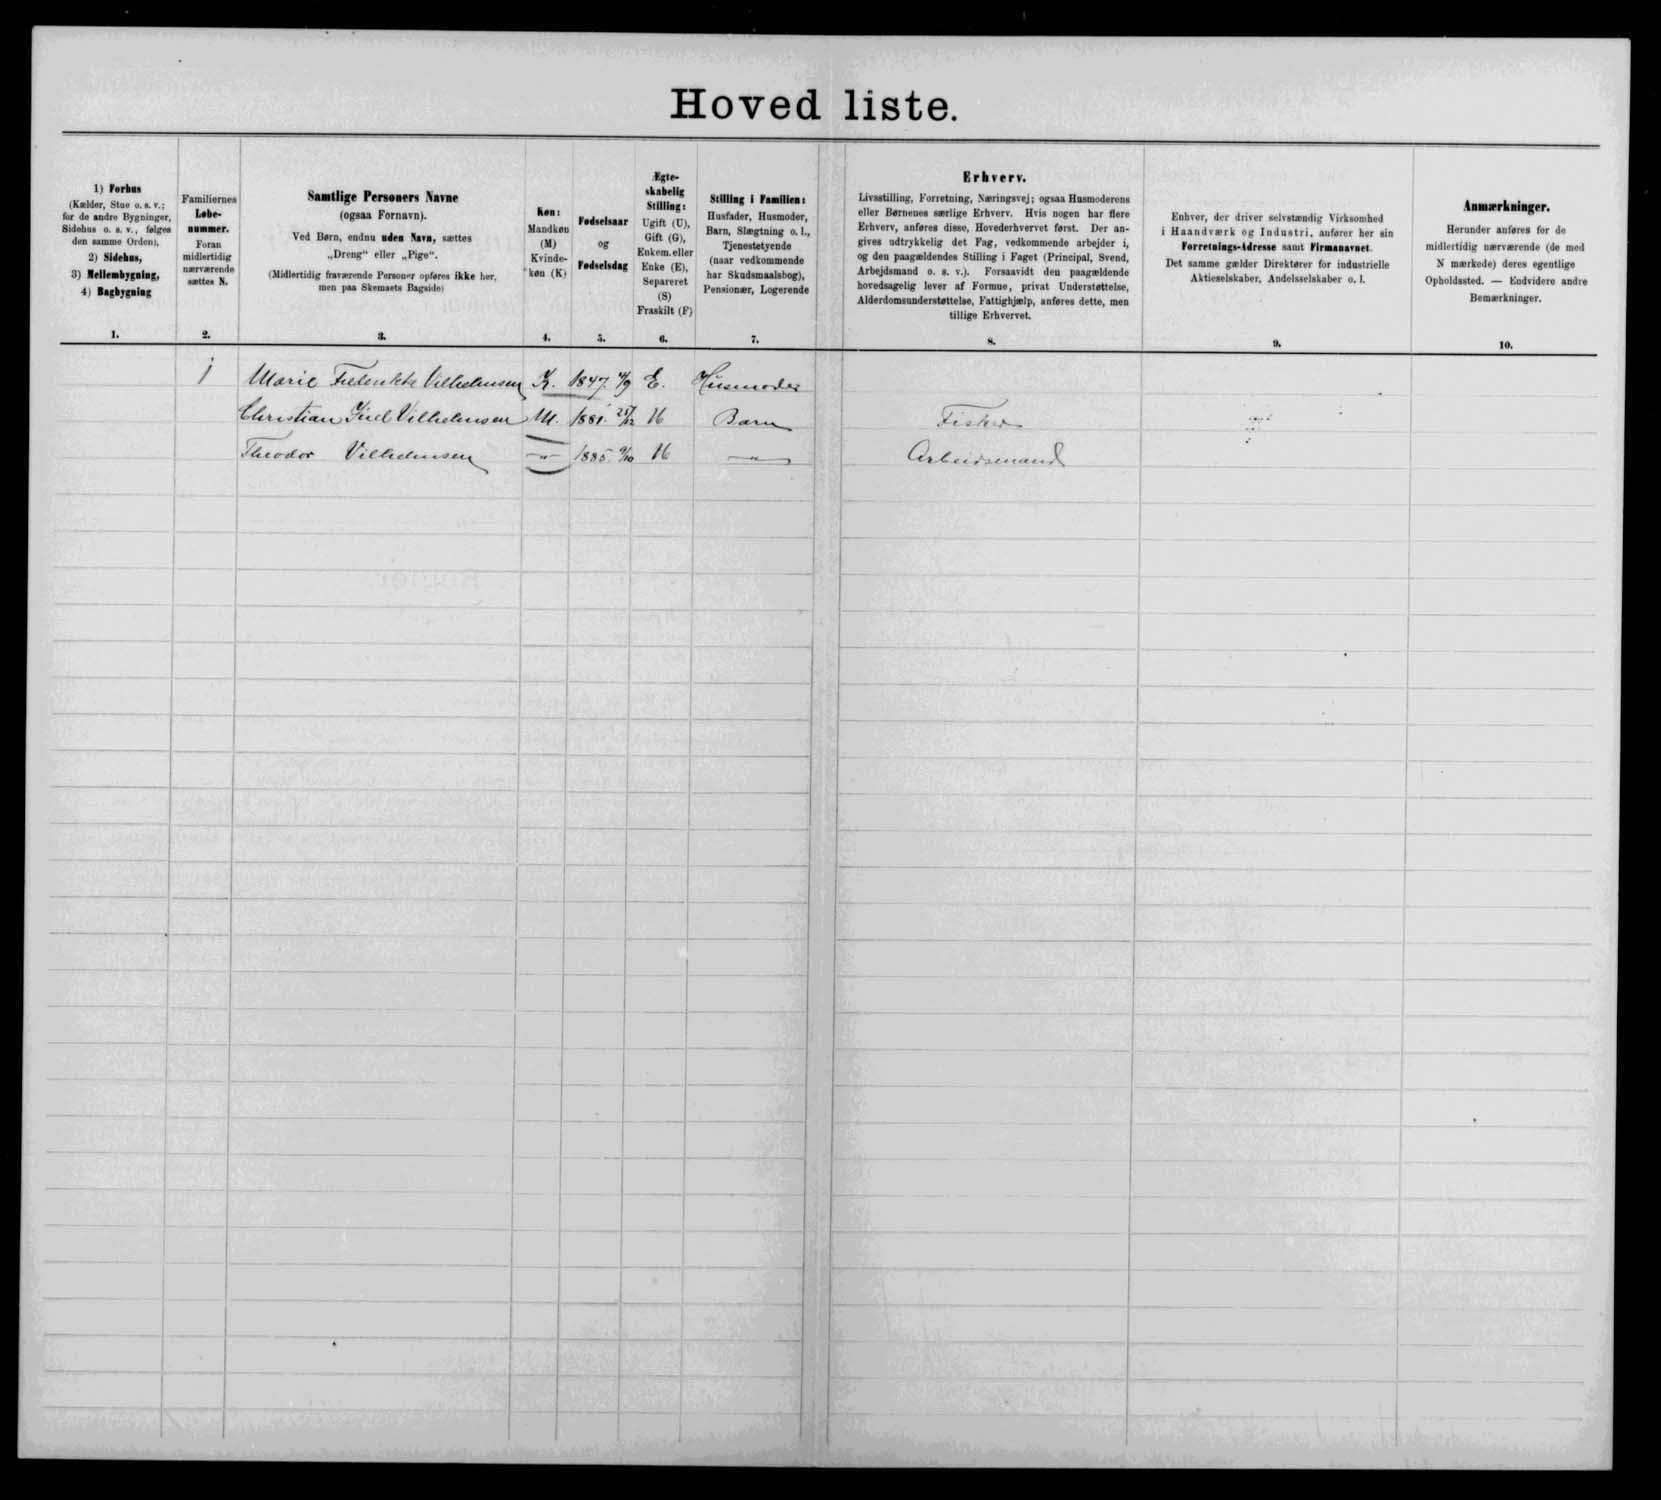 Hoved liste.
1) Forhus
(Kælder, Stue o. s. v.;
for de andre Bygninger,
Sidehus o. s. v., følges
den samme Orden),
2) Sidehus,
3) Mellembygning,
4) Bagbygning
1.
Familiernes
Løbe-
nummer.
Foran
midlertidig
nærværende
sættes N.
2.
Samtlige Personers Navne
(ogsaa Fornavn).
Ved Børn, endnu uden Navn, sættes
„Dreng“ eller „Pige“.
(Midlertidig fraværende Personer opføres ikke her,
men paa Skemaets Bagside)
3.
Køn:
Mandkøn
(M)
Kvinde-
køn (K)
4.
Fødselsaar
og
Fødselsdag
5.
Ægte-
skabelig
Stilling:
Ugift (U),
Gift (G),
Enkem. eller
Enke (E),
Separeret
(S)
Fraskilt (F)
6.
Stilling i Familien:
Husfader, Husmoder,
Barn, Slægtning o. l.,
Tjenestetyende
(naar vedkommende
har Skudsmaalsbog),
Pensionær, Logerende
7.
Erhverv.
Livsstilling, Forretning, Næringsvej; ogsaa Husmoderens
eller Børnenes særlige Erhverv. Hvis nogen har flere
Erhverv, anføres disse, Hovederhvervet først. Der an-
gives udtrykkelig det Fag, vedkommende arbejder i,
og den paagældendes Stilling i Faget (Principal, Svend,
Arbejdsmand o. s. v.). Forsaavidt den paagældende
hovedsagelig lever af Formue, privat Understøttelse,
Alderdomsunderstøttelse, Fattighjælp, anføres dette, men
tillige Erhvervet.
8.
Enhver, der driver selvstændig Virksomhed
i Haandværk og Industri, anfører her sin
Forretnings-Adresse samt Firmanavnet.
Det samme gælder Direktører for industrielle
Aktieselskaber, Andelsselskaber o. l.
9.
Anmærkninger.
Herunder anføres for de
midlertidig nærværende (de med
N mærkede) deres egentlige
Opholdssted. — Endvidere andre
Bemærkninger.
10.
1 Marie Frederikke Vilhelmsen K. 1847 4/9 E. Husmoder
Christian Vilhelmsen M. 1881. 25/12 U Barn Fisker
Theodor Vilhelmsen — „ — 1885. 9/10 U — „ — Arbeidsmand